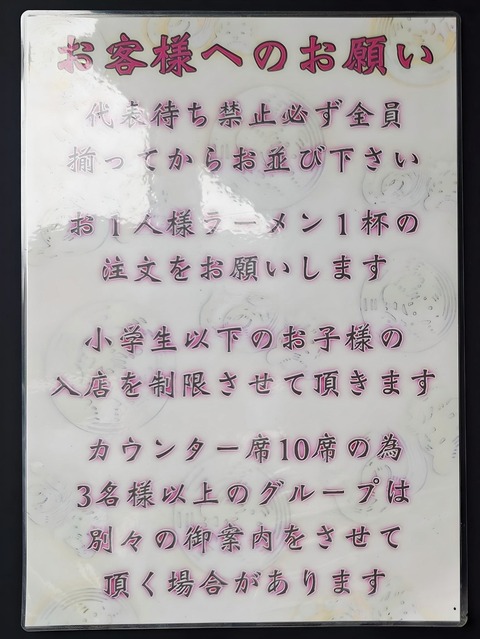 お客様へのお願い
代表待ち禁止必ず全員
揃ってからお並び下さい
お1人様ラーメン1杯の
注文をお願いします
小学生以下のお子様の
入店を制限させて頂きます
カウンター席10席の為
3名様以上のグループは
別々の御案内をさせて
頂く場合があります